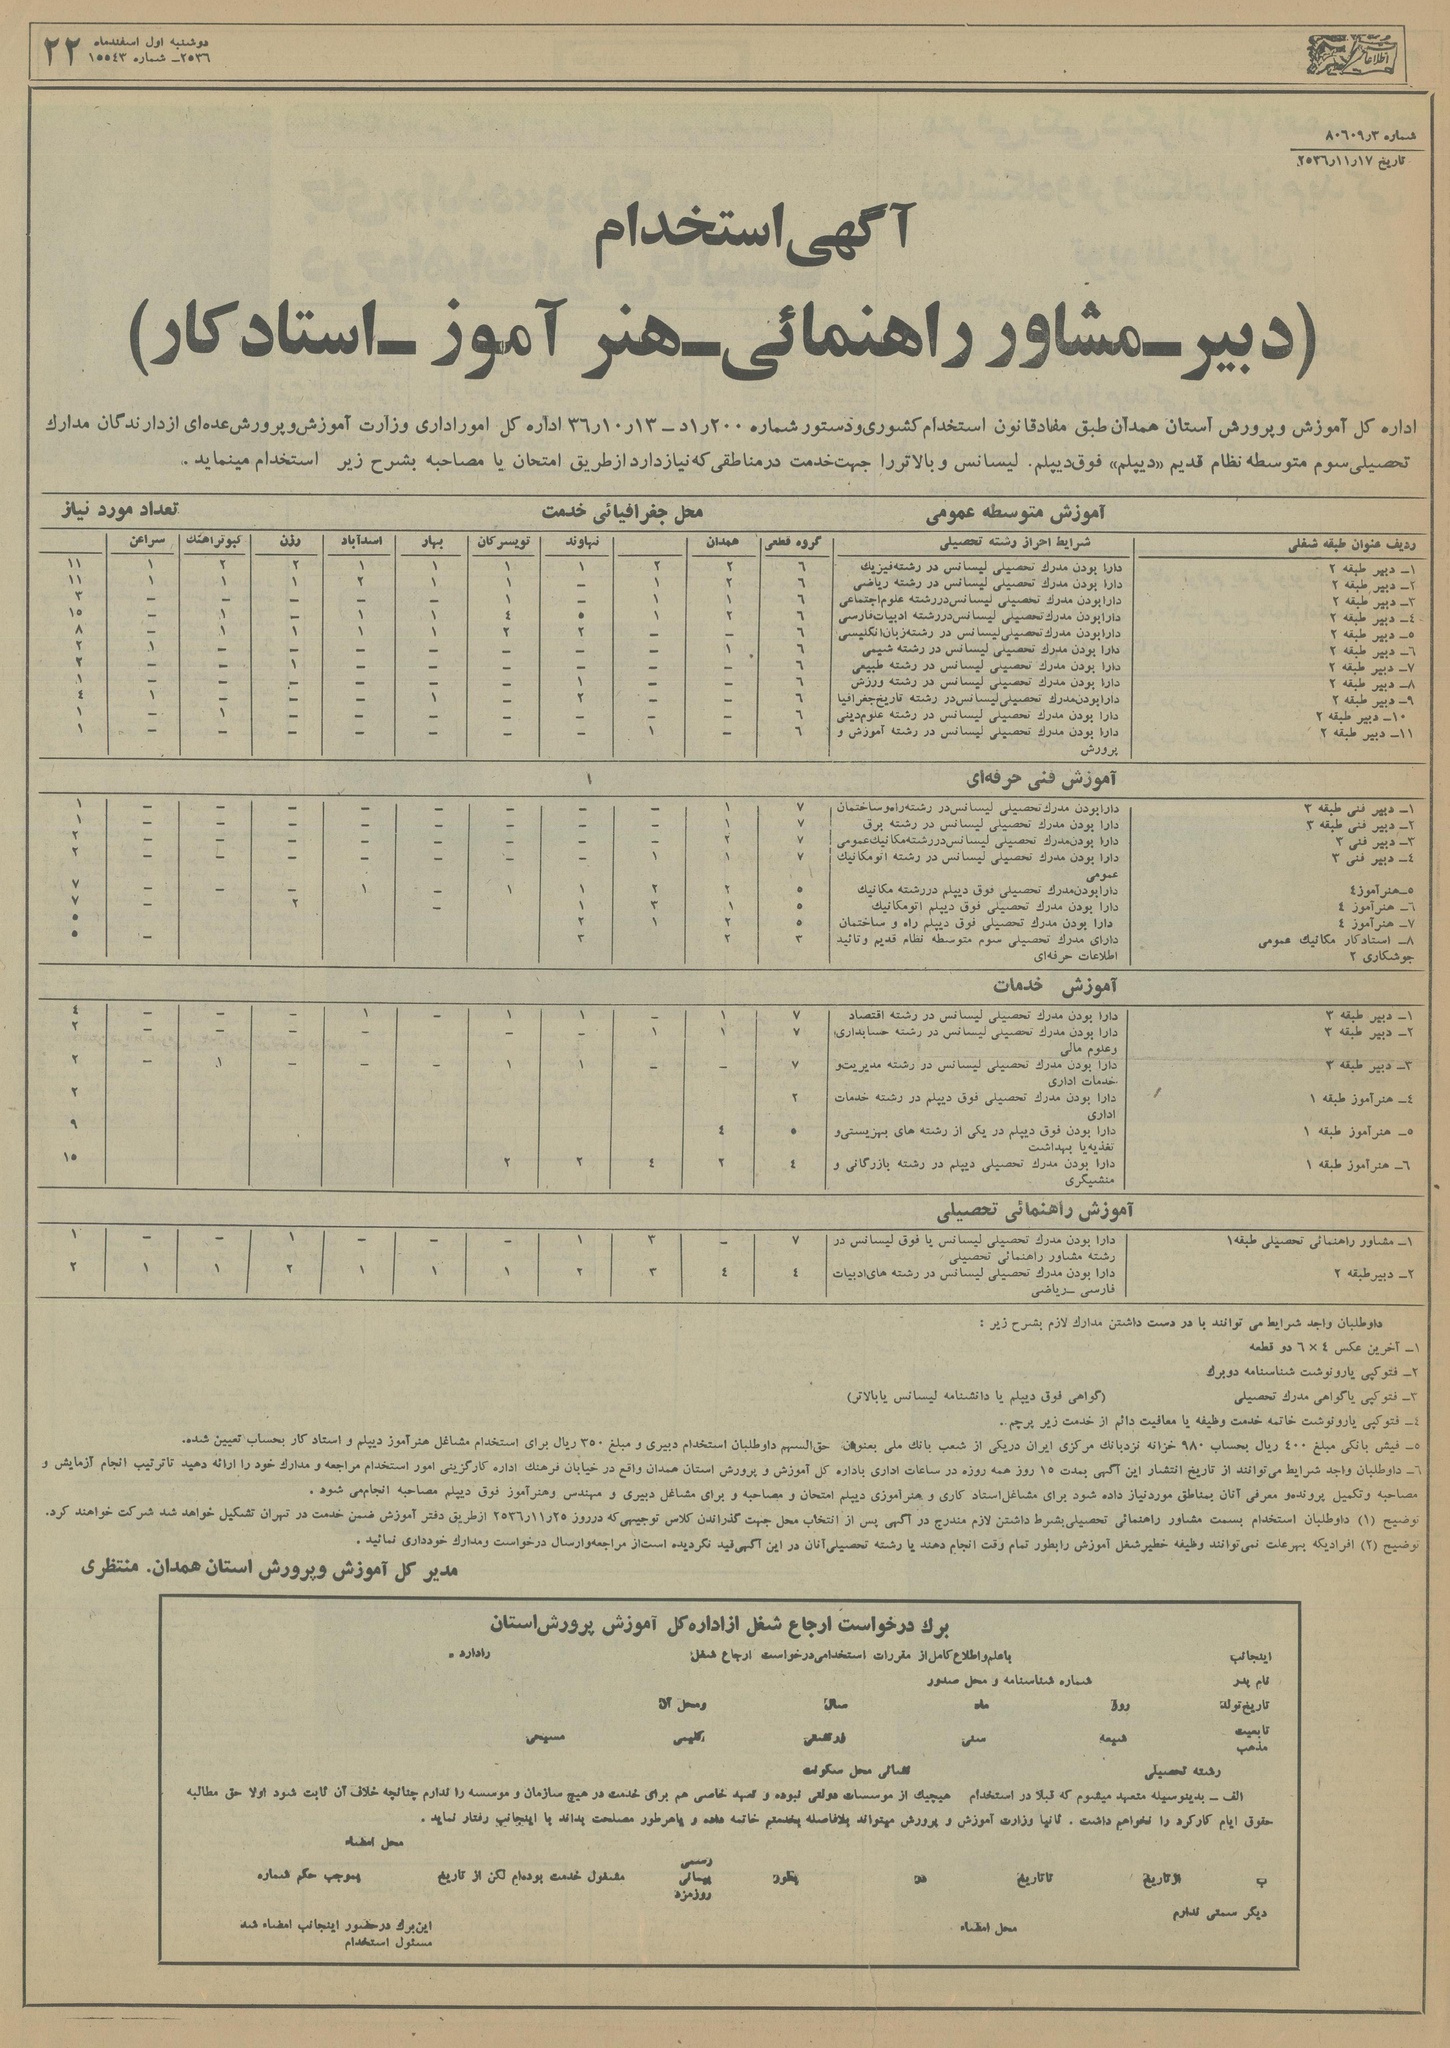 دوشنبه اول اسفندماه
۲۵۳۶ـ شماره ۱۵۵۴۳
۲۲
اطلاعات
شماره ۸۰۶۰۹ر۳
تاریخ ۱۷ر۱۱ر۲۵۳۶
آگهی استخدام
(دبیر ـ مشاور راهنمائی ـ هنر آموز ـ استادکار)
اداره کل آموزش و پرورش استان همدان طبق مفادقانون استخدام کشوری و دستور شماره ۲۰۰ر۱د ـ ۱۳ر۱۰ر۳۶ اداره کل اموراداری وزارت آموزش و پرورش عده‌ای ازدارندگان مدارک
تحصیلی سوم متوسطه نظام قدیم «دیپلم» فوق‌دیپلم. لیسانس و بالاتر را جهت خدمت درمناطقی که نیاز دارد ازطریق امتحان یا مصاحبه بشرح زیر استخدام مینماید.
آموزش متوسطه عمومی محل جغرافیائی خدمت تعداد مورد نیاز
ردیف عنوان طبقه شغلی شرایط احراز رشته تحصیلی گروه قطعی همدان نهاوند تویسرکان بهار اسدآباد رزن کبوترآهنگ سراعن
۱ـ دبیر طبقه ۲ دارا بودن مدرک تحصیلی لیسانس در رشته فیزیک ۶ ۲ ۲ ۱ ۱ ۱ ۱ ۲ ۲ ۱ ۱۱
۲ـ دبیر طبقه ۲ دارا بودن مدرک تحصیلی لیسانس در رشته ریاضی ۶ ۲ ۱ – ۱ ۱ ۲ ۱ ۱ ۱ ۱۱
۳ـ دبیر طبقه ۲ دارابودن مدرک تحصیلی لیسانس در رشته علوم اجتماعی ۶ ۱ ۱ – ۱ – – – – – ۳
۴ـ دبیر طبقه ۲ دارابودن مدرک تحصیلی لیسانس در رشته ادبیات فارسی ۶ ۲ ۱ ۵ ۴ ۱ ۱ – ۱ – ۱۵
۵ـ دبیر طبقه ۲ دارابودن مدرک تحصیلی لیسانس در رشته زبان انگلیسی ۶ – – ۲ ۲ ۱ ۱ ۱ ۱ – ۸
۶ـ دبیر طبقه ۲ دارا بودن مدرک تحصیلی لیسانس در رشته شیمی ۶ ۱ – – – – – – – ۱ ۲
۷ـ دبیر طبقه ۲ دارا بودن مدرک تحصیلی لیسانس در رشته طبیعی ۶ – – – – – – ۱ – – ۲
۸ـ دبیر طبقه ۲ دارا بودن مدرک تحصیلی لیسانس در رشته ورزش ۶ – – ۱ – – – – – – ۱
۹ـ دبیر طبقه ۲ دارابودن مدرک تحصیلی لیسانس در رشته تاریخ جغرافیا ۶ – – ۲ – ۱ – – – ۱ ۴
۱۰ـ دبیر طبقه ۲ دارا بودن مدرک تحصیلی لیسانس در رشته علوم دینی ۶ – – – – – – – ۱ – ۱
۱۱ـ دبیر طبقه ۲ دارا بودن مدرک تحصیلی لیسانس در رشته آموزش و ۶ – ۱ – – – – – – – ۱
پرورش
آموزش فنی حرفه‌ای ۱
۱ـ دبیر فنی طبقه ۳ دارابودن مدرک تحصیلی لیسانس در رشته راه و ساختمان ۷ ۱ – – – – – – – – ۱
۲ـ دبیر فنی طبقه ۳ دارا بودن مدرک تحصیلی لیسانس در رشته برق ۷ ۱ – – – – – – – – ۱
۳ـ دبیر فنی ۳ دارا بودن مدرک تحصیلی لیسانس در رشته مکانیک عمومی ۷ ۲ – – – – – – – – ۲
۴ـ دبیر فنی ۳ دارا بودن مدرک تحصیلی لیسانس در رشته اتومکانیک ۷ ۱ ۱ – – – – – – – ۲
عمومی
۵ـ هنرآموز ۴ دارابودن مدرک تحصیلی فوق دیپلم در رشته مکانیک ۵ ۲ ۲ ۱ ۱ – ۱ – – – ۷
۶ـ هنرآموز ۴ دارا بودن مدرک تحصیلی فوق دیپلم اتومکانیک ۵ ۱ ۳ ۱ – ۲ – ۷
۷ـ هنرآموز ۴ دارا بودن مدرک تحصیلی فوق دیپلم راه و ساختمان ۵ ۲ ۱ ۲ ۵
۸ـ استادکار مکانیک عمومی دارای مدرک تحصیلی سوم متوسطه نظام قدیم و تائید ۳ ۲ ۳ – ۵
جوشکاری ۲ اطلاعات حرفه‌ای
آموزش خدمات
۱ـ دبیر طبقه ۳ دارا بودن مدرک تحصیلی لیسانس در رشته اقتصاد ۷ ۱ – ۱ ۱ – ۱ – – – ۴
۲ـ دبیر طبقه ۳ دارا بودن مدرک تحصیلی لیسانس در رشته حسابداری ۷ ۱ ۱ – – – – – – – ۲
وعلوم مالی
۳ـ دبیر طبقه ۳ دارا بودن مدرک تحصیلی لیسانس در رشته مدیریت و ۷ – – ۱ ۱ – – – ۱ – ۲
خدمات اداری
۴ـ هنرآموز طبقه ۱ دارا بودن مدرک تحصیلی فوق دیپلم در رشته خدمات ۲ ۲
اداری
۵ـ هنرآموز طبقه ۱ دارا بودن فوق دیپلم در یکی از رشته های بهزیستی و ۵ ۴ ۹
تغذیه یا بهداشت
۶ـ هنرآموز طبقه ۱ دارا بودن مدرک تحصیلی دیپلم در رشته بازرگانی و ۴ ۲ ۴ ۲ ۲ ۱۵
منشیگری
آموزش راهنمائی تحصیلی
۱ـ مشاور راهنمائی تحصیلی طبقه ۱ دارا بودن مدرک تحصیلی لیسانس یا فوق لیسانس در ۷ – ۳ ۱ – – – ۱ – – ۱
رشته مشاور راهنمائی تحصیلی
۲ـ دبیرطبقه ۲ دارا بودن مدرک تحصیلی لیسانس در رشته های ادبیات ۴ ۴ ۳ ۲ ۱ ۱ ۱ ۲ ۱ ۱ ۲
فارسی ـ ریاضی
داوطلبان واجد شرایط می توانند با در دست داشتن مدارک لازم بشرح زیر :
۱ـ آخرین عکس ۴ × ۶ دو قطعه
۲ـ فتوکپی یارونوشت شناسنامه دوبرگ
۳ـ فتوکپی یاگواهی مدرک تحصیلی (گواهی فوق دیپلم یا دانشنامه لیسانس یابالاتر)
۴ـ فتوکپی یارونوشت خاتمه خدمت وظیفه یا معافیت دائم از خدمت زیر پرچم.
۵ـ فیش بانکی مبلغ ۴۰۰ ریال بحساب ۹۸۰ خزانه نزدبانک مرکزی ایران دریکی از شعب بانک ملی بعنوان حق‌السهم داوطلبان استخدام دبیری و مبلغ ۳۵۰ ریال برای استخدام مشاغل هنرآموز دیپلم و استاد کار بحساب تعیین شده.
۶ـ داوطلبان واجد شرایط می‌توانند از تاریخ انتشار این آگهی بمدت ۱۵ روز همه روزه در ساعات اداری باداره کل آموزش و پرورش استان همدان واقع در خیابان فرهنگ اداره کارگزینی امور استخدام مراجعه و مدارک خود را ارائه دهید تاترتیب انجام آزمایش و
مصاحبه وتکمیل پرونده و معرفی آنان بمناطق موردنیاز داده شود برای مشاغل استاد کاری و هنرآموزی دیپلم امتحان و مصاحبه و برای مشاغل دبیری و مهندس وهنرآموز فوق دیپلم مصاحبه انجام می شود.
توضیح (۱) داوطلبان استخدام بسمت مشاور راهنمائی تحصیلی بشرط داشتن لازم مندرج در آگهی پس از انتخاب محل جهت گذراندن کلاس توجیهی که درروز ۲۵ر۱۱ر۲۵۳۶ ازطریق دفتر آموزش ضمن خدمت در تهران تشکیل خواهد شد شرکت خواهند کرد.
توضیح (۲) افرادیکه بهرعلت نمی‌توانند وظیفه خطیرشغل آموزش را بطور تمام وقت انجام دهند یا رشته تحصیلی آنان در این آگهی قید نگردیده است از مراجعه و ارسال درخواست ومدارک خودداری نمائید.
مدیر کل آموزش وپرورش استان همدان. منتظری
برگ درخواست ارجاع شغل ازاداره کل آموزش پرورش استان
اینجانب باعلم واطلاع کامل از مقررات استخدامی درخواست ارجاع شغل رادارد.
نام پدر شماره شناسنامه و محل صدور
تاریخ تولد روز ماه سال ومحل آن
تابعیت
مذهب شیعه سنی زرتشتی کلیمی مسیحی
رشته تحصیلی نشانی محل سکونت
الف ـ بدینوسیله متعهد میشوم که قبلا در استخدام هیچیک از موسسات دولتی نبوده و تعهد خاصی هم برای خدمت در هیچ سازمان و موسسه را ندارم چنانچه خلاف آن ثابت شود اولا حق مطالبه
حقوق ایام کارکرد را نخواهم داشت. ثانیا وزارت آموزش و پرورش میتواند بلافاصله بخدمتم خاتمه داده و یاهرطور مصلحت بداند با اینجانب رفتار نماید.
محل امضاء
ب ازتاریخ تاتاریخ در بطور رسمی پیمانی روزمزد مشغول خدمت بوده‌ام لکن از تاریخ بموجب حکم شماره
دیگر سمتی ندارم
محل امضاء
این برگ درحضور اینجانب امضاء شد
مسئول استخدام